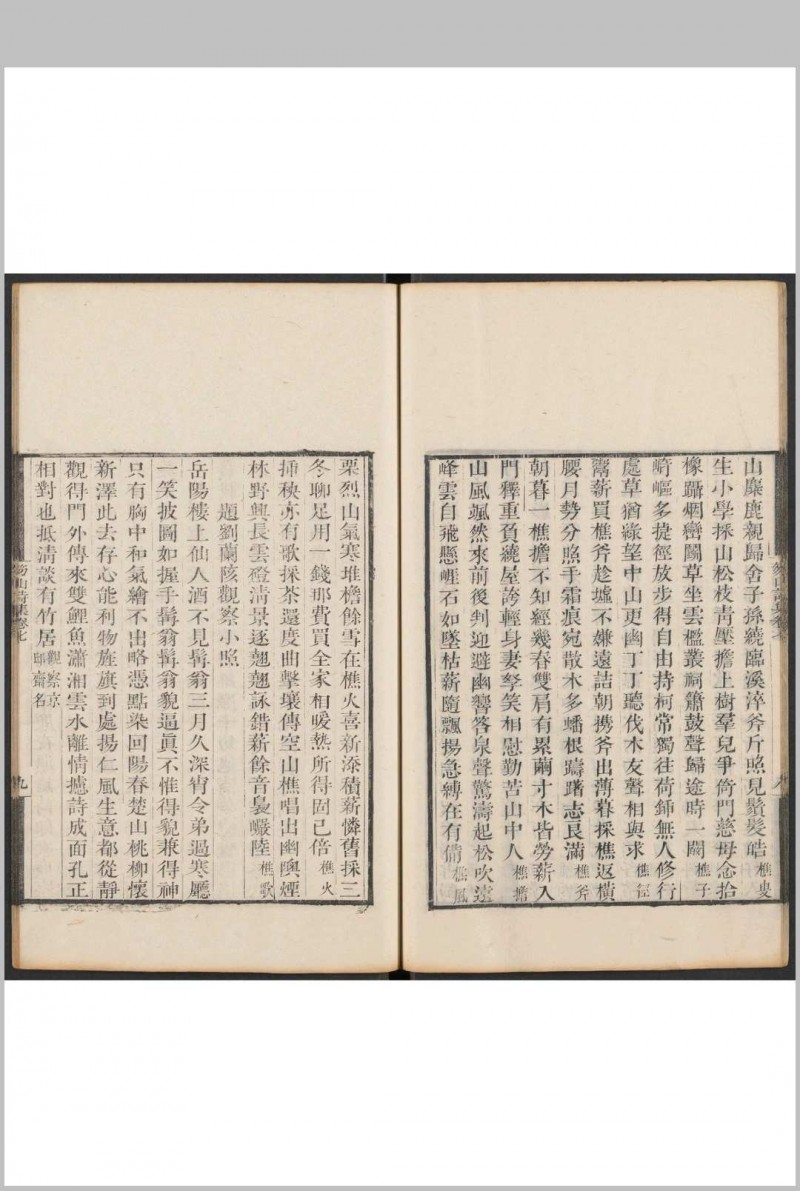 山麋鹿親歸舍子孫繞臨溪淬斧斤照見鬚髮皓樵叟
生小學採山松枝青壓擔上樹羣兒爭倚門慈母念拾
橡躡烟巒鬭草坐雲檻叢祠簫鼓聲歸途時一闞樵子
崎嶇多捷徑放步得自由持柯常獨往荷鍤無人修行
處草猶綠望中山更幽丁丁聽伐木友聲相與求樵徑
鬻薪買樵斧趁墟不嫌遠詰朝携斧出薄暮採樵返橫
腰月勢分照手霜痕宛散木多蟠根躊躇志良滿樵斧
朝暮一樵擔不知經幾春雙肩有累繭寸木皆勞薪入
門釋重負繞屋誇輕身妻孥笑相慰勤苦山中人樵擔
山風颯然來前後判迎避幽響答泉聲驚濤起松吹遠
峰雲自飛懸崕石如墜枯薪隨飄揚急縛在有備樵風
栗烈山氣寒堆檐餘雪在樵火喜新添積薪憐舊採三
冬聊足用一錢那費買全家相暖熱所得固已倍樵火
挿秧亦有歌採茶還度曲擊壤傳空山樵唱出幽隩煙
林野興長雲磴淸景逐翹翹詠錯薪餘音裊巖陸樵歌
題劉蘭陔觀察小照
岳陽樓上仙人酒不見髯翁三月久深宵令弟過寒廳
一笑披圖如握手髯翁髯翁貌逼眞不惟得貌兼得神
只有胸中和氣繪不出略憑點染回陽春楚山桃柳懷
新澤此去存心能利物旌旗到處揚仁風生意都從靜
觀得門外傳來雙鯉魚瀟湘雲水離情攄詩成面孔正
相對也抵淸談有竹居觀察京邸齋名
九